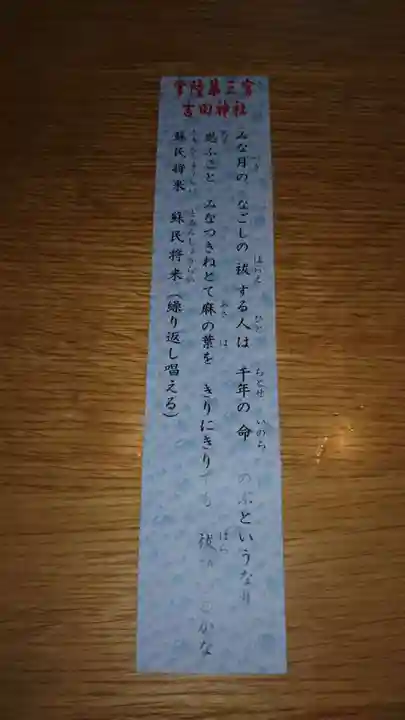 常陸第三宮
吉田神社
みな月の なごしの祓する人は 千年の命 のぶというなり
思ふこと みなつきねとて麻の葉を きりにきりても 祓 かな
蘇民将来 蘇民将来(繰り返し唱える)